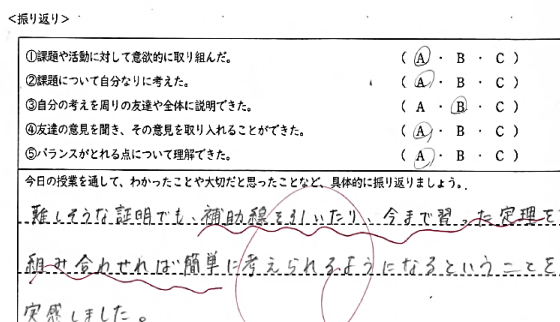 <振り返り>
①課題や活動に対して意欲的に取り組んだ。 ( A ・ B ・ C )
②課題について自分なりに考えた。 ( A ・ B ・ C )
③自分の考えを周りの友達や全体に説明できた。 ( A ・ B ・ C )
④友達の意見を聞き、その意見を取り入れることができた。 ( A ・ B ・ C )
⑤バランスがとれる点について理解できた。 ( A ・ B ・ C )
今日の授業を通して、わかったことや大切だと思ったことなど、具体的に振り返りましょう。
難しそうな証明でも、補助線を引いたり、今まで習った定理を
組み合わせれば簡単に考えられるようになるということを
実感しました。